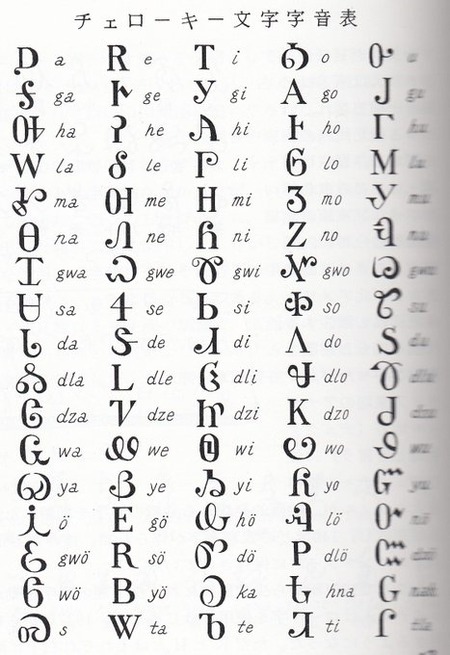 チェローキー文字字音表
Ꭰ a Ꭱ e Ꭲ i Ꭳ o Ꭴ
Ꭶ ga Ꭸ ge Ꭹ gi Ꭺ go Ꭻ
Ꭽ ha Ꭾ he Ꭿ hi Ꮀ ho Ꮁ
Ꮃ la Ꮄ le Ꮅ li Ꮆ lo Ꮇ
Ꮉ ma Ꮊ me Ꮋ mi Ꮌ mo Ꮍ
Ꮎ na Ꮑ ne Ꮒ ni Ꮓ no Ꮔ
Ꮖ gwa Ꮗ gwe Ꮘ gwi Ꮙ gwo Ꮚ
Ꮜ sa Ꮞ se Ꮟ si Ꮠ so Ꮡ
Ꮣ da Ꮥ de Ꮧ di Ꮩ do Ꮪ
Ꮬ dla Ꮮ dle Ꮯ dli Ꮰ dlo Ꮱ
Ꮳ dza Ꮴ dze Ꮵ dzi Ꮶ dzo Ꮷ
Ꮹ wa Ꮺ we Ꮻ wi Ꮼ wo Ꮽ
Ꮿ ya Ᏸ ye Ᏹ yi Ᏺ yo Ᏻ
Ꭵ ö Ꭼ gö Ꮂ hö Ꮈ lö Ꮕ
Ꮛ gwö Ꮢ sö Ꮫ dö Ꮲ dlö Ꮸ
Ꮾ wö Ᏼ yö Ꭷ ka Ꮏ hna Ꮐ
Ꮝ s Ꮤ ta Ꮦ te Ꮨ ti Ꮭ